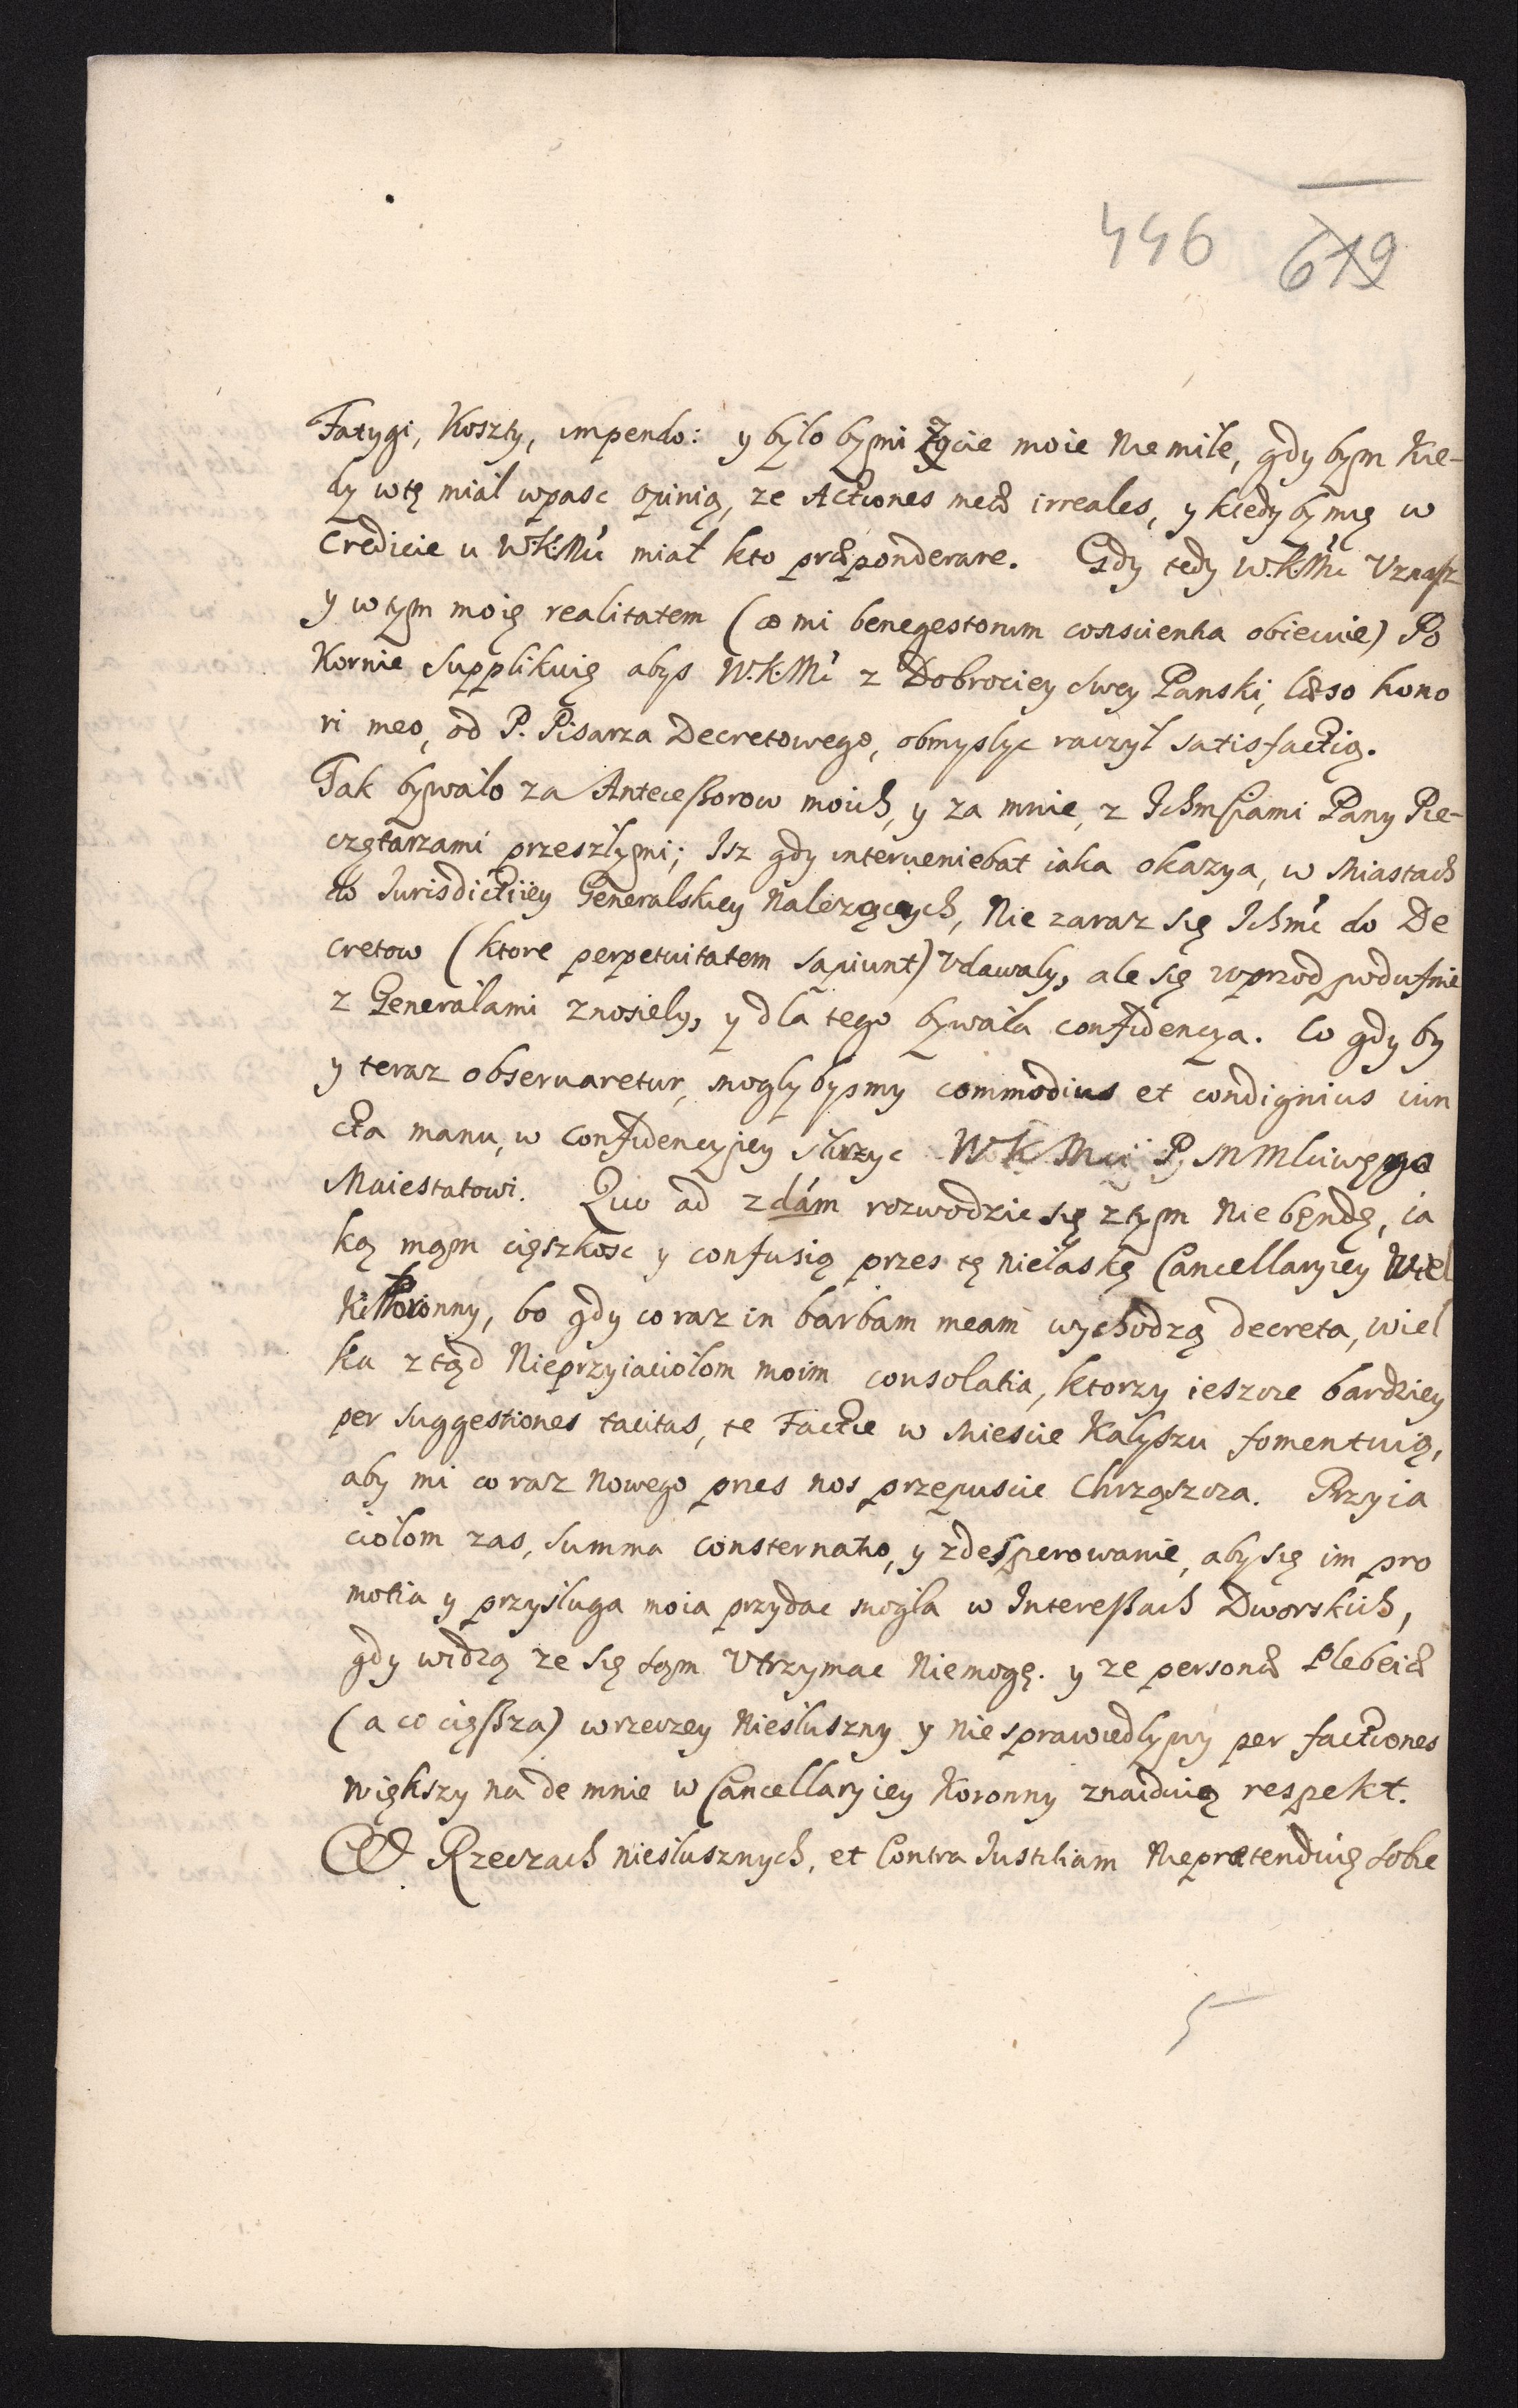 446 619
Fatygi, Koszty, impendo: y było bymi życie moie Nie miłe, gdy bym Kie-
dy w tę miał wpasc opinią, ze Actiones meæ irreales, y kiedy by mię w
Credicie u W.K.Mci miał kto præponderare. Gdy tedy W.K.Mc Vznasz
y w tym moię realitatem (co mi benegestorum conscientia obiecuie) Po
Kornie Supplikuię abys W.K.Mc z Dobrociey swey Panski, læso hono
ri meo, od P. Pisarza Decretowego, obmyslyc raczył satisfactią.
Tak bywało za Antecessorow moich, y za mnie, z Ichmsciami Pany Pie-
czętarzami przeszłymi; Isz gdy interueniebat iaka okazya, w Miastach
do Jurisdictiiey Generalskiey Nalezących, Nie zaraz się Ichmc do De
cretow (ktore perpetuitatem sapiunt) Vdawaly, ale się wprzod poduffnie
z Generałami znosiely, y dla tego bywała confidencya. Co gdy by
y teraz obseruaretur, moglybysmy commodius et condignius iun
cta manu, w Confidencyiey słuzyc W K Mci P. M Mlciwęgo
Maiestatowi. Quo ad zdám rozwodzic się z tym Nie bęndę, ia
ką mąm cięszkosc y confusią przes tę niełaskę Cancellaryiey Wiel
Ki Koronny, bo gdy co raz in barbam meam wychodzą decreta, wiel
ka ztąd Nieprzyiaciołom moim consolatia, ktorzy ieszcze bardziey
per suggestiones tacitas, te Factie w Miescie Kalyszu fomentuią,
aby mi co raz Nowego przes nos przepuscic Chrząszcza. Przyia
ciołom zas, summa consternatio, y zdesperowanie, aby się im pro
motia y przysługa moia przydac mogła w Interessach Dworskich,
gdy widzą ze się sąm Vtrzymac Niemogę. y ze personæ Plebeiæ
(a co cięssza) w rzeczey Niesłuszny y niesprawiedlywy per factiones
większy na de mnie w Cancellaryiey Koronny znaiduią respekt.
O Rzeczach niesłusznych, et Contra Justitiam Nieprætenduię sobie
5